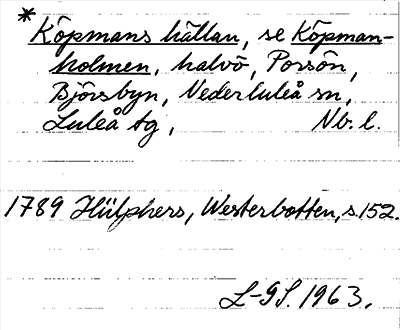 * Köpmans hällan, se Köpman-
holmen, halvö, Porsön,
Björsbyn, Nederluleå sn,
Luleå tg, Nb. l.
1789 Hülphers, Westerbotten, s. 152.
L-GS. 1963.